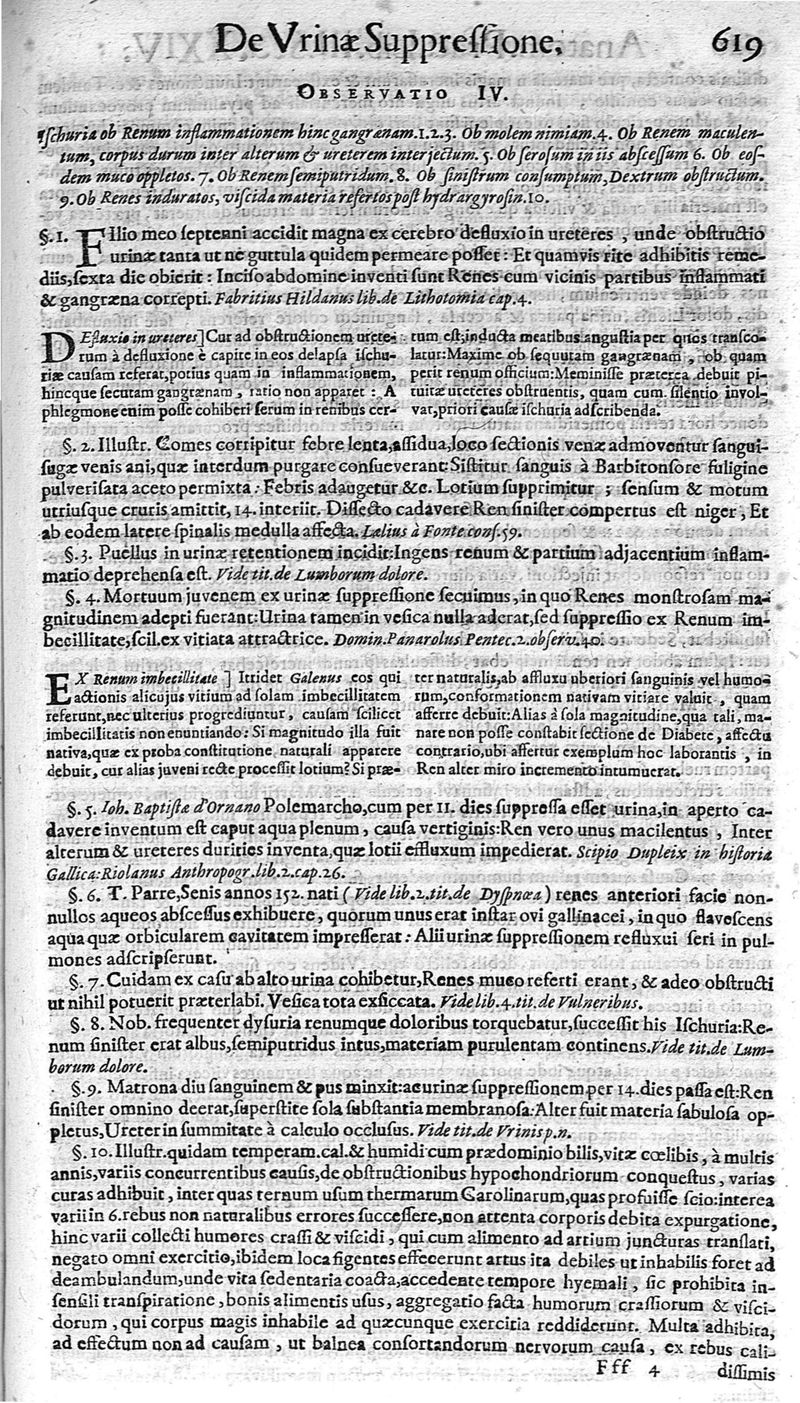 De Vrinæ Suppreſſione, 619
OBSERVATIO IV.
Iſchuria ob Renum inflammationem hinc gangrænam. 1. 2. 3. Ob molem nimiam. 4. Ob Renem maculen-
tum, corpus durum inter alterum & ureterem interjectum. 5. Ob ſeroſum in iis abſceſſum 6. Ob eoſ-
dem muco oppletos. 7. Ob Renem ſemiputridum. 8. Ob ſiniſtrum conſumptum, Dextrum obſtructum.
9. Ob Renes induratos, viſcida materia refertos poſt hydrargyroſin. 10.
§. 1. Filio meo ſeptenni accidit magna ex cerebro defluxio in ureteres, unde obſtructio
urinæ tanta ut ne guttula quidem permeare poſſet: Et quamvis rite adhibitis reme-
diis, ſexta die obierit: Inciſo abdomine inventi ſunt Renes cum vicinis partibus inflammati
& gangræna correpti. Fabritius Hildanus lib. de Lithotomia cap. 4.
DEfluxio in ureteres] Cur ad obſtructionem urete-
rum à defluxione è capite in eos delapſa iſchu-
riæ cauſam referat, potius quam in inflammationem,
hincque ſecutam gangrænam, ratio non apparet: A
phlegmone enim poſſe cohiberi ſerum in renibus cer-
tum eſt; inducta meatibus anguſtia per quos tranſco-
latur: Maxime ob ſequutam gangrænam, ob quam
perit renum officium: Meminiſſe præterea debuit pi-
tuitæ ureteres obſtruentis, quam cum ſilentio invol-
vat, priori cauſæ iſchuria adſcribenda.
§. 2. Illuſtr. Comes corripitur febre lenta, aſſidua, loco ſectionis venæ admoventur ſangui-
ſugæ venis ani, quæ interdum purgare conſueverant: Siſtitur ſanguis à Barbitonſore fuligine
pulveriſata aceto permixta: Febris adaugetur &c. Lotium ſupprimitur; ſenſum & motum
utriuſque cruris amittit, 14. interiit. Diſſecto cadavere Ren ſiniſter compertus eſt niger, Et
ab eodem latere ſpinalis medulla affecta. Lælius à Fonte conſ. 59.
§. 3. Puellus in urinæ retentionem incidit: Ingens renum & partium adjacentium inflam-
matio deprehenſa eſt. Vide tit. de Lumborum dolore.
§. 4. Mortuum juvenem ex urinæ ſuppreſſione ſecuimus, in quo Renes monſtroſam ma-
gnitudinem adepti fuerant: Urina tamen in veſica nulla aderat, ſed ſuppreſſio ex Renum im-
becillitate, ſcil. ex vitiata attractrice. Domin. Panarolus Pentec. 2. obſerv. 40.
EX Renum imbecillitate] Irridet Galenus eos qui
actionis alicujus vitium ad ſolam imbecillitatem
referunt, nec ulterius progrediuntur, cauſam ſcilicet
imbecillitatis non enuntiando: Si magnitudo illa fuit
nativa, quæ ex proba conſtitutione naturali apparere
debuit, cur alias juveni recte proceſſit lotium? Si præ-
ter naturalis, ab affluxu uberiori ſanguinis vel humo-
rum, conformationem nativam vitiare valuit, quam
afferre debuit: Alias à ſola magnitudine, qua tali, ma-
nare non poſſe conſtabit ſectione de Diabete, affectu
contrario, ubi affertur exemplum hoc laborantis, in
Ren alter miro incremento intumuerat.
§. 5. Ioh. Baptiſtæ d'Ornano Polemarcho, cum per 11. dies ſuppreſſa eſſet urina, in aperto ca-
davere inventum eſt caput aqua plenum, cauſa vertiginis: Ren vero unus macilentus, Inter
alterum & ureteres durities inventa, quæ lotii effluxum impedierat. Scipio Dupleix in hiſtoria
Gallica: Riolanus Anthropogr. lib. 2. cap. 26.
§. 6. T. Parre, Senis annos 152. nati (Vide lib. 2. tit. de Dyſpnœa) renes anteriori facie non-
nullos aqueos abſceſſus exhibuere, quorum unus erat inſtar ovi gallinacei, in quo flaveſcens
aqua quæ orbicularem cavitatem impreſſerat: Alii urinæ ſuppreſſionem refluxui ſeri in pul-
mones adſcripſerunt.
§. 7. Cuidam ex caſu ab alto urina cohibetur, Renes muco referti erant, & adeo obſtructi
ut nihil potuerit præterlabi. Veſica tota exſiccata. Vide lib. 4. tit. de Vulneribus.
§. 8. Nob. frequenter dyſuria renumque doloribus torquebatur, ſucceſſit his Iſchuria: Re-
num ſiniſter erat albus, ſemiputridus intus, materiam purulentam continens. Vide tit. de Lum-
borum dolore.
§. 9. Matrona diu ſanguinem & pus minxit: ac urinæ ſuppreſſionem per 14. dies paſſa eſt: Ren
ſiniſter omnino deerat, ſuperſtite ſola ſubſtantia membranoſa: Alter fuit materia ſabuloſa op-
pletus, Ureter in ſummitate à calculo occluſus. Vide tit. de Vrinis p. n.
§. 10. Illuſtr. quidam temperam. cal. & humidi cum prædominio bilis, vitæ cœlibis, à multis
annis, variis concurrentibus cauſis, de obſtructionibus hypochondriorum conqueſtus, varias
curas adhibuit, inter quas ternum uſum thermarum Carolinarum, quas profuiſſe ſcio: interea
varii in 6. rebus non naturalibus errores ſucceſſere, non attenta corporis debita expurgatione,
hinc varii collecti humores craſſi & viſcidi, qui cum alimento ad artium juncturas tranſlati,
negato omni exercitio, ibidem loca figentes effecerunt artus ita debiles ut inhabilis foret ad
deambulandum, unde vita ſedentaria coacta, accedente tempore hyemali, ſic prohibita in-
ſenſili tranſpiratione, bonis alimentis uſus, aggregatio facta humorum craſſiorum & viſci-
dorum, qui corpus magis inhabile ad quæcunque exercitia reddiderunt. Multa adhibita,
ad effectum non ad cauſam, ut balnea confortandorum nervorum cauſa, ex rebus cali-
Fff 4 diſſimis